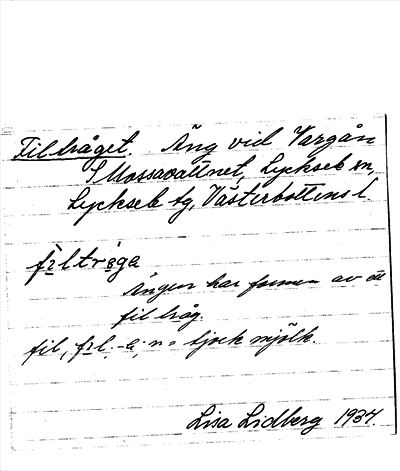 Filtråget. Äng vid Vargån
S Mossavattnet, Lycksele sn,
Lycksele tg, Västerbottens l.
filtråga
Ängen har formen av ett
filtråg.
fil, fil, -a; n = tjock mjölk.
Lisa Lidberg 1934.